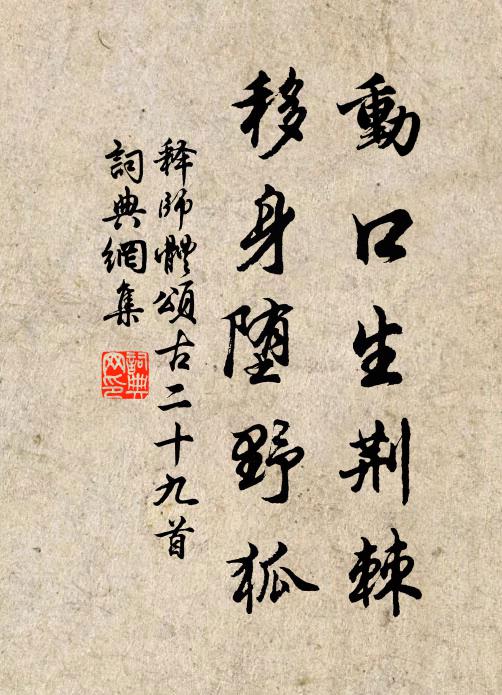 動口生荆棘
移身堕野狐
释師體頌古二十九首
詞典網集
詞典
网印